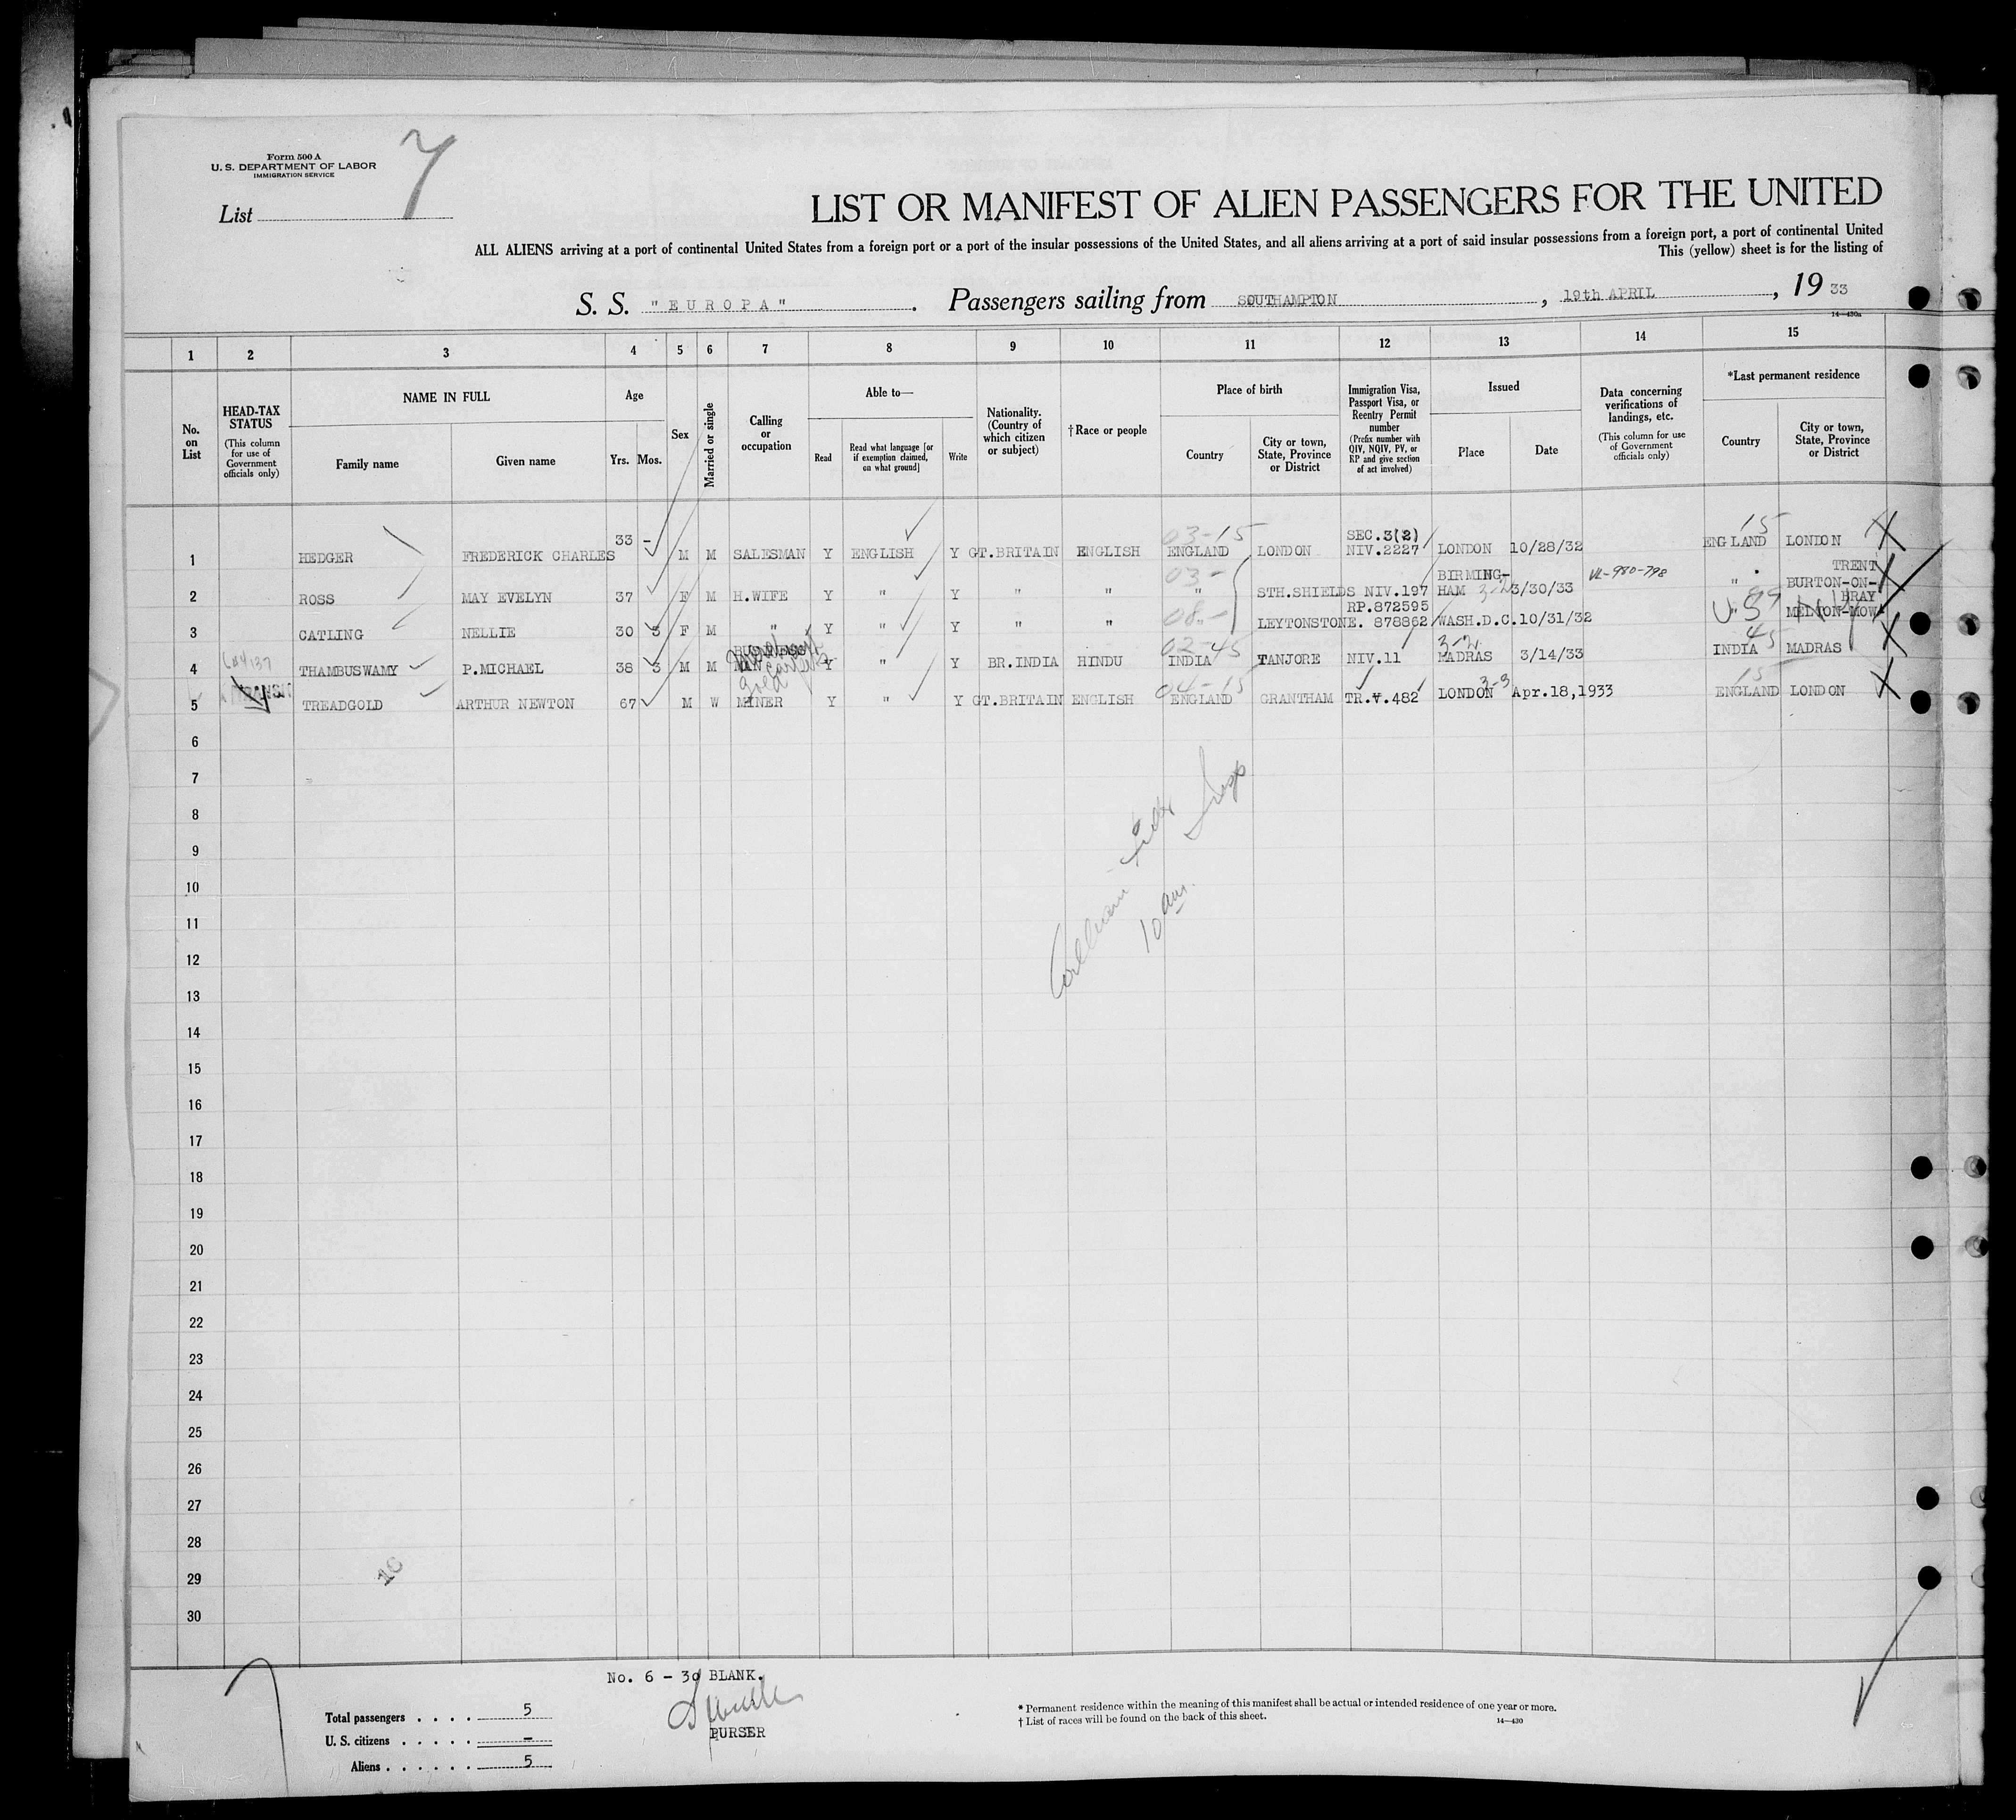 Form 500 A
U. S. DEPARTMENT OF LABOR
IMMIGRATION SERVICE
List 7
LIST OR MANIFEST OF ALIEN PASSENGERS FOR THE UNITED
ALL ALIENS arriving at a port of continental United States from a foreign port or a port of the insular possessions of the United States, and all aliens arriving at a port of said insular possessions from a foreign port, a port of continental United
This (yellow) sheet is for the listing of
S. S. "EUROPA". Passengers sailing from SOUTHAMPTON, 19th APRIL, 1933
14—430a
1 2 3 4 5 6 7 8 9 10 11 12 13 14 15
No. on List
HEAD-TAX STATUS (This column for use of Government officials only)
NAME IN FULL
Family name
Given name
Age
Yrs. Mos.
Sex
Married or single
Calling or occupation
Able to—
Read
Read what language [or if exemption claimed, on what ground]
Write
Nationality. (Country of which citizen or subject)
†Race or people
Place of birth
Country
City or town, State, Province or District
Immigration Visa, Passport Visa, or Reentry Permit number (Prefix number with QIV, NQIV, PV, or RP and give section of act involved)
Issued
Place
Date
Data concerning verifications of landings, etc. (This column for use of Government officials only)
*Last permanent residence
Country
City or town, State, Province or District
03-15 SEC.3(2) 15
1 HEDGER FREDERICK CHARLES 33 - M M SALESMAN Y ENGLISH Y GT.BRITAIN ENGLISH ENGLAND LONDON NIV.2227 LONDON 10/28/32 ENGLAND LONDON
03- BIRMING- VL-980-798 TRENT
2 ROSS MAY EVELYN 37 F M H.WIFE Y " Y " " " STH.SHIELDS NIV.197 HAM 3-2 3/30/33 " BURTON-ON-
RP.872595 BRAY
3 CATLING NELLIE 30 3 F M " Y " Y " " 08- " LEYTONSTONE. 878862 WASH.D.C. 10/31/32 US 99 MELTON-MOW-
02-45 3-2 45
4 THAMBUSWAMY P.MICHAEL 38 3 M M MAN Y " Y BR.INDIA HINDU INDIA TANJORE NIV.11 MADRAS 3/14/33 INDIA MADRAS
TRANSIT gold 04-15 3-3 15
5 TREADGOLD ARTHUR NEWTON 67 M W MINER Y " Y GT.BRITAIN ENGLISH ENGLAND GRANTHAM TR.V.482 LONDON Apr.18,1933 ENGLAND LONDON
6
7
8
9
10
10 am.
11
12
13
14
15
16
17
18
19
20
21
22
23
24
25
26
27
28
29
30
16
No. 6 - 30 BLANK.
PURSER
Total passengers . . . . 5
U. S. citizens . . . . . -
Aliens . . . . . . 5
* Permanent residence within the meaning of this manifest shall be actual or intended residence of one year or more.
† List of races will be found on the back of this sheet.
14—430